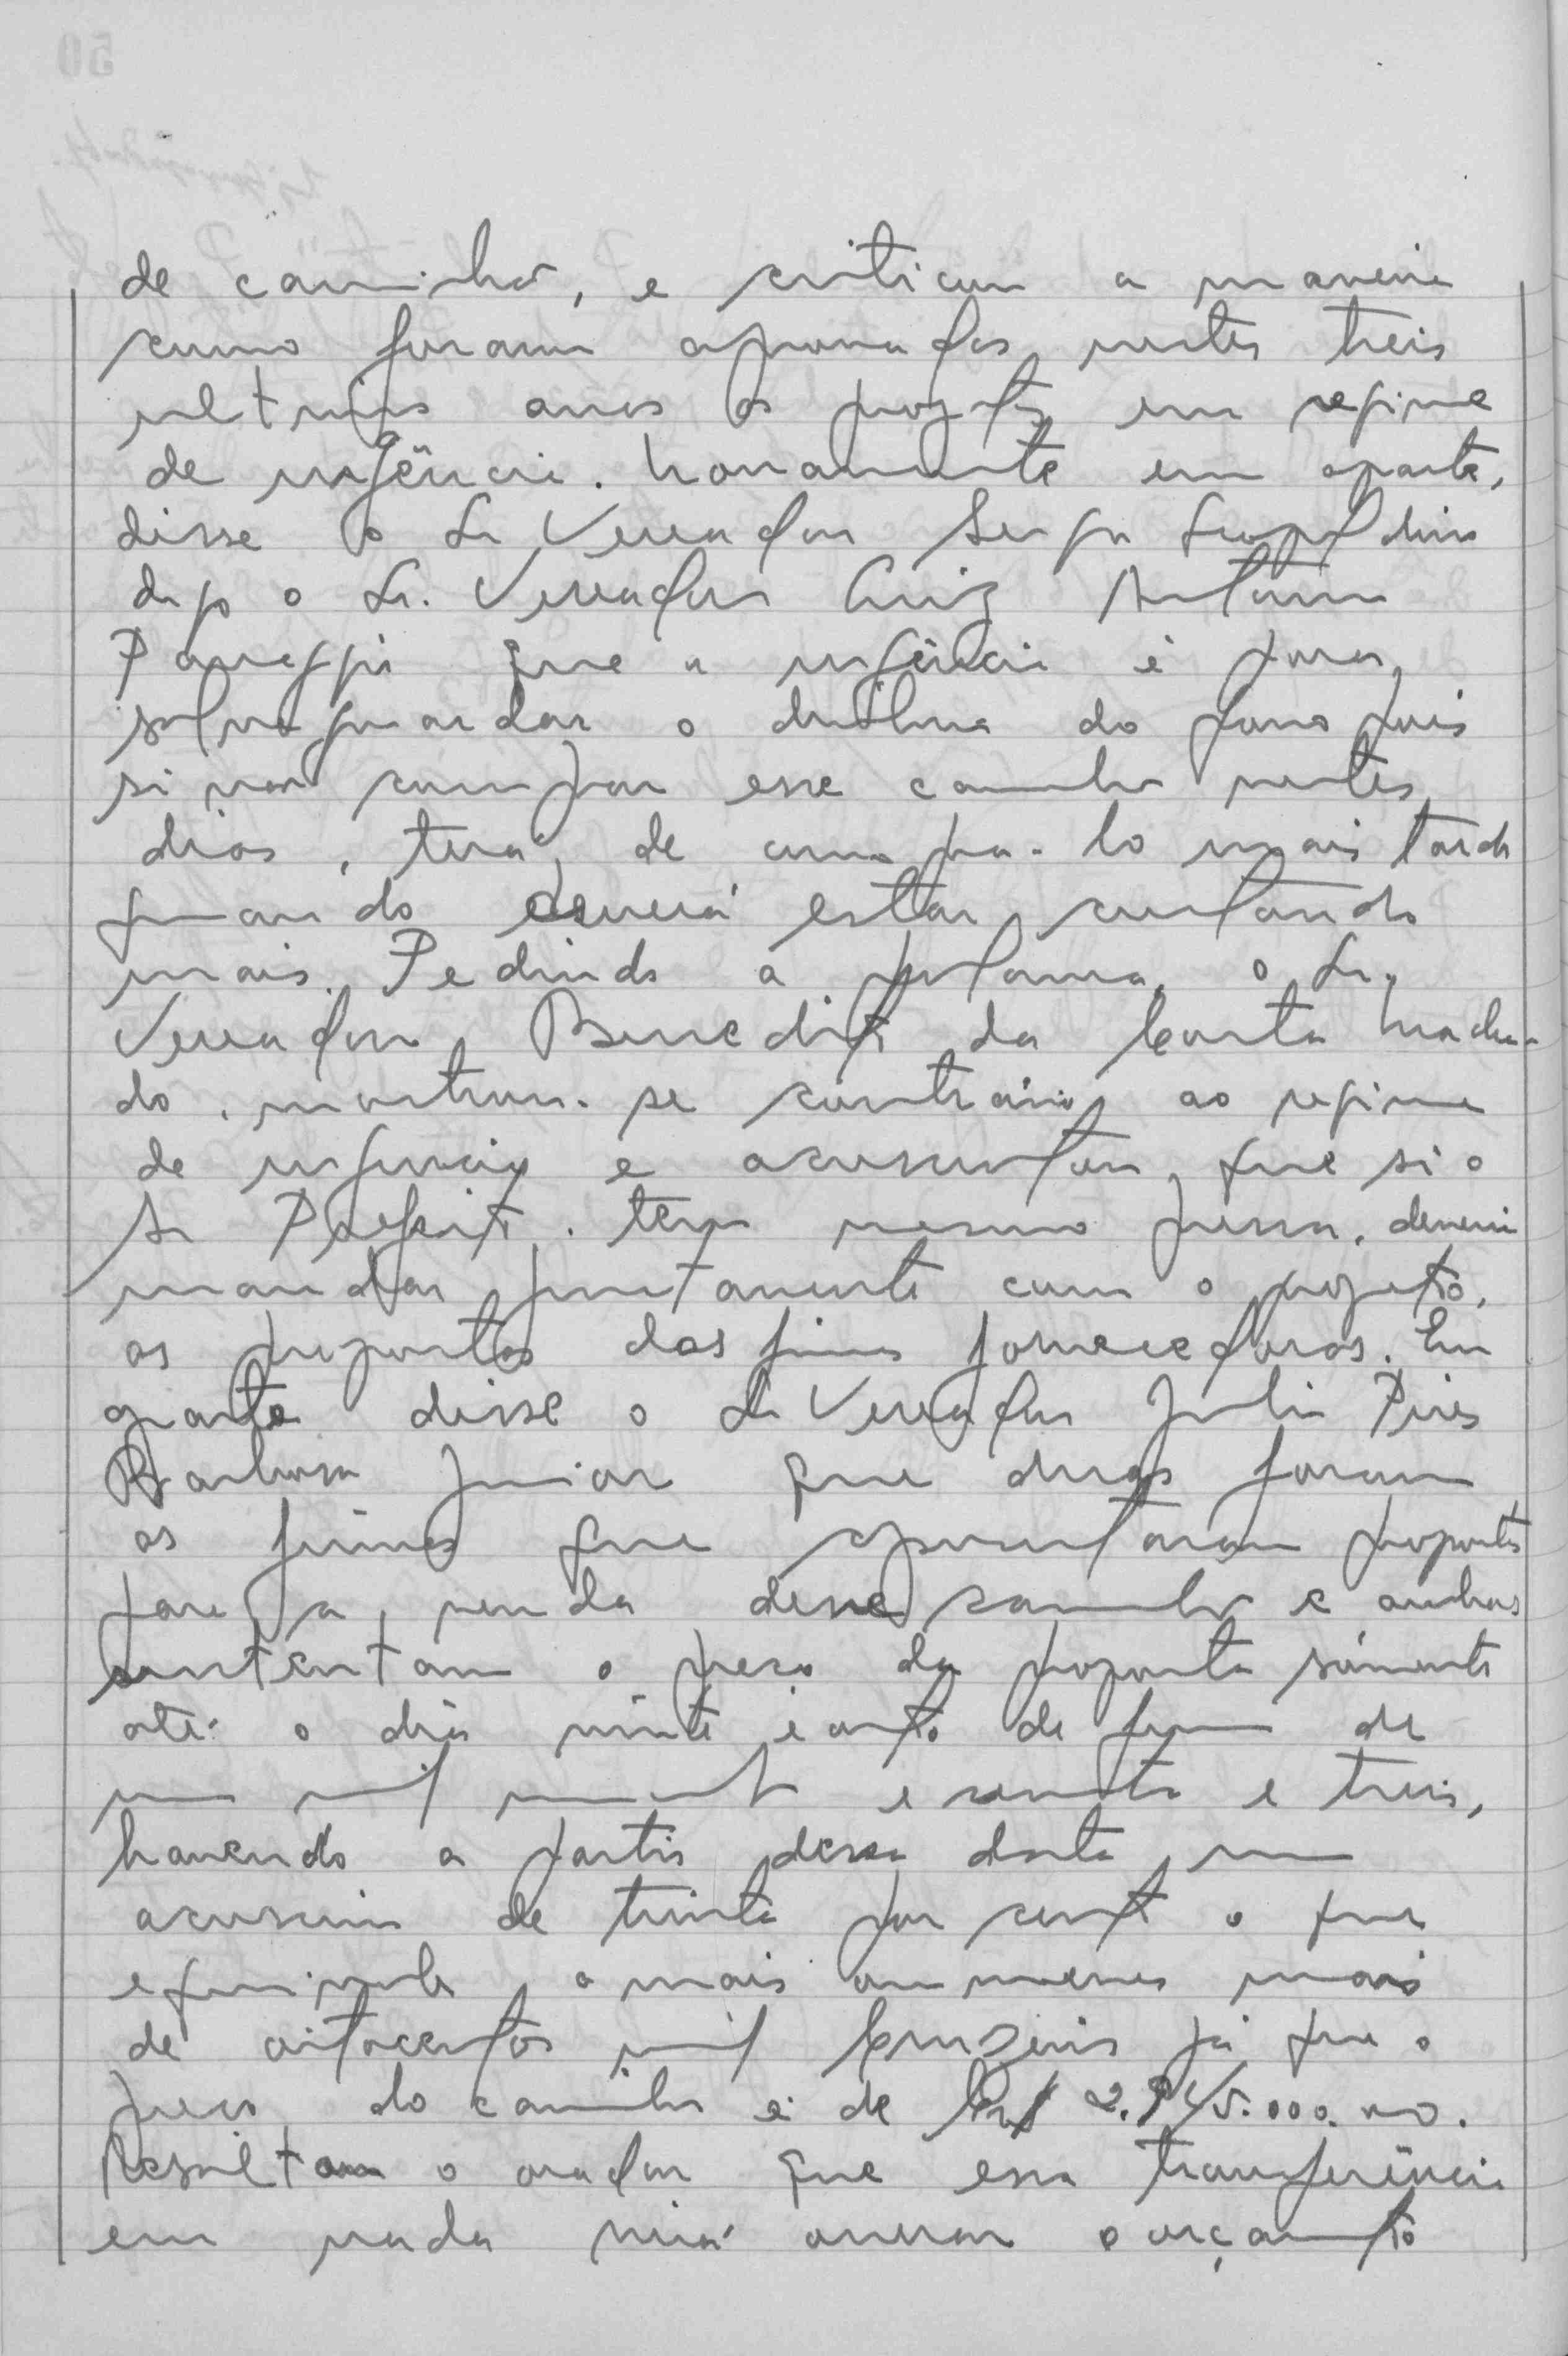 de caminhão, e criticou a maneira
como foram aprovados nestes treis
ultimos anos os projetos em regime
de urgência. Novamente em aparte,
disse o Sr Vereador Leopoldino
o Sr. Vereador Luiz Antonio
que a urgência é para
salvaguardar o dinheiro do povo pois
si não comprar esse caminhão nestes
dias, terá de compra-lo mais tarde
quando deverá estar custando
mais. Pedindo a palavra o Sr.
Vereador Benedito da Costa Macha-
do, mostrou-se contrário ao regime
de urgencia e acrescentou, que si o
Sr Prefeito tem mesmo pressa, deveria
mandar juntamente com o projeto,
as propostas das firmas fornecedoras. Em
aparte disse o Sr Vereador Julio Pires
Barbosa Junior que duas foram
as firmas que apresentaram propostas
para a venda desse caminhão e ambas
sustentam o preço da proposta sómente
até o dia vinte e oito de de
um mil novecentos e sessenta e treis,
havendo a partir dessa data um
acrescimo de trinta por cento o que
equivale a mais ou menos mais
de oitocentos mil Cruzeiros já que o
preço do caminhão é de Cr$ 2.945.000.00.
Resaltou o orador que essa transferência
em nada virá onerar o orçamento